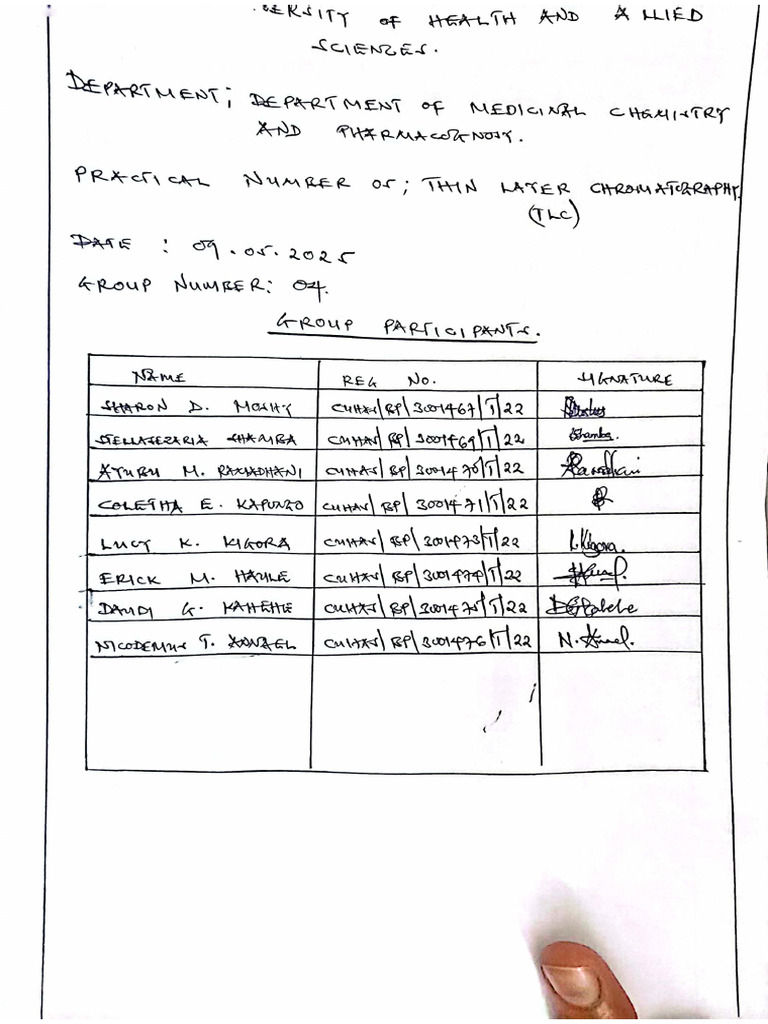 ERSITY OF HEALTH AND ALLIED
SCIENCES.
DEPARTMENT; DEPARTMENT OF MEDICINAL CHEMISTRY
AND PHARMACOGNOSY.
PRACTICAL NUMBER 05; THIN LAYER CHROMATOGRAPHY.
(TLC)
DATE : 09.05.2025
GROUP NUMBER: 04.
GROUP PARTICIPANTS.
NAME REG No. SIGNATURE
SHARON D. MOSHY CUHAS/BP/3001467/T/22
STELLA SHAMBA CUHAS/BP/3001469/T/22 Shamba.
AYUBU M. RAMADHANI CUHAS/BP/3001470/T/22 Ramadhani
COLETHA E. KAPUNZO CUHAS/BP/3001471/T/22
LUCY K. KIGORA CUHAS/BP/3001473/T/22 L.Kigora.
ERICK M. HAULE CUHAS/BP/3001474/T/22
DAUDI G. KAHEHE CUHAS/BP/3001475/T/22
NICODEMUS T. CUHAS/BP/3001476/T/22 N.